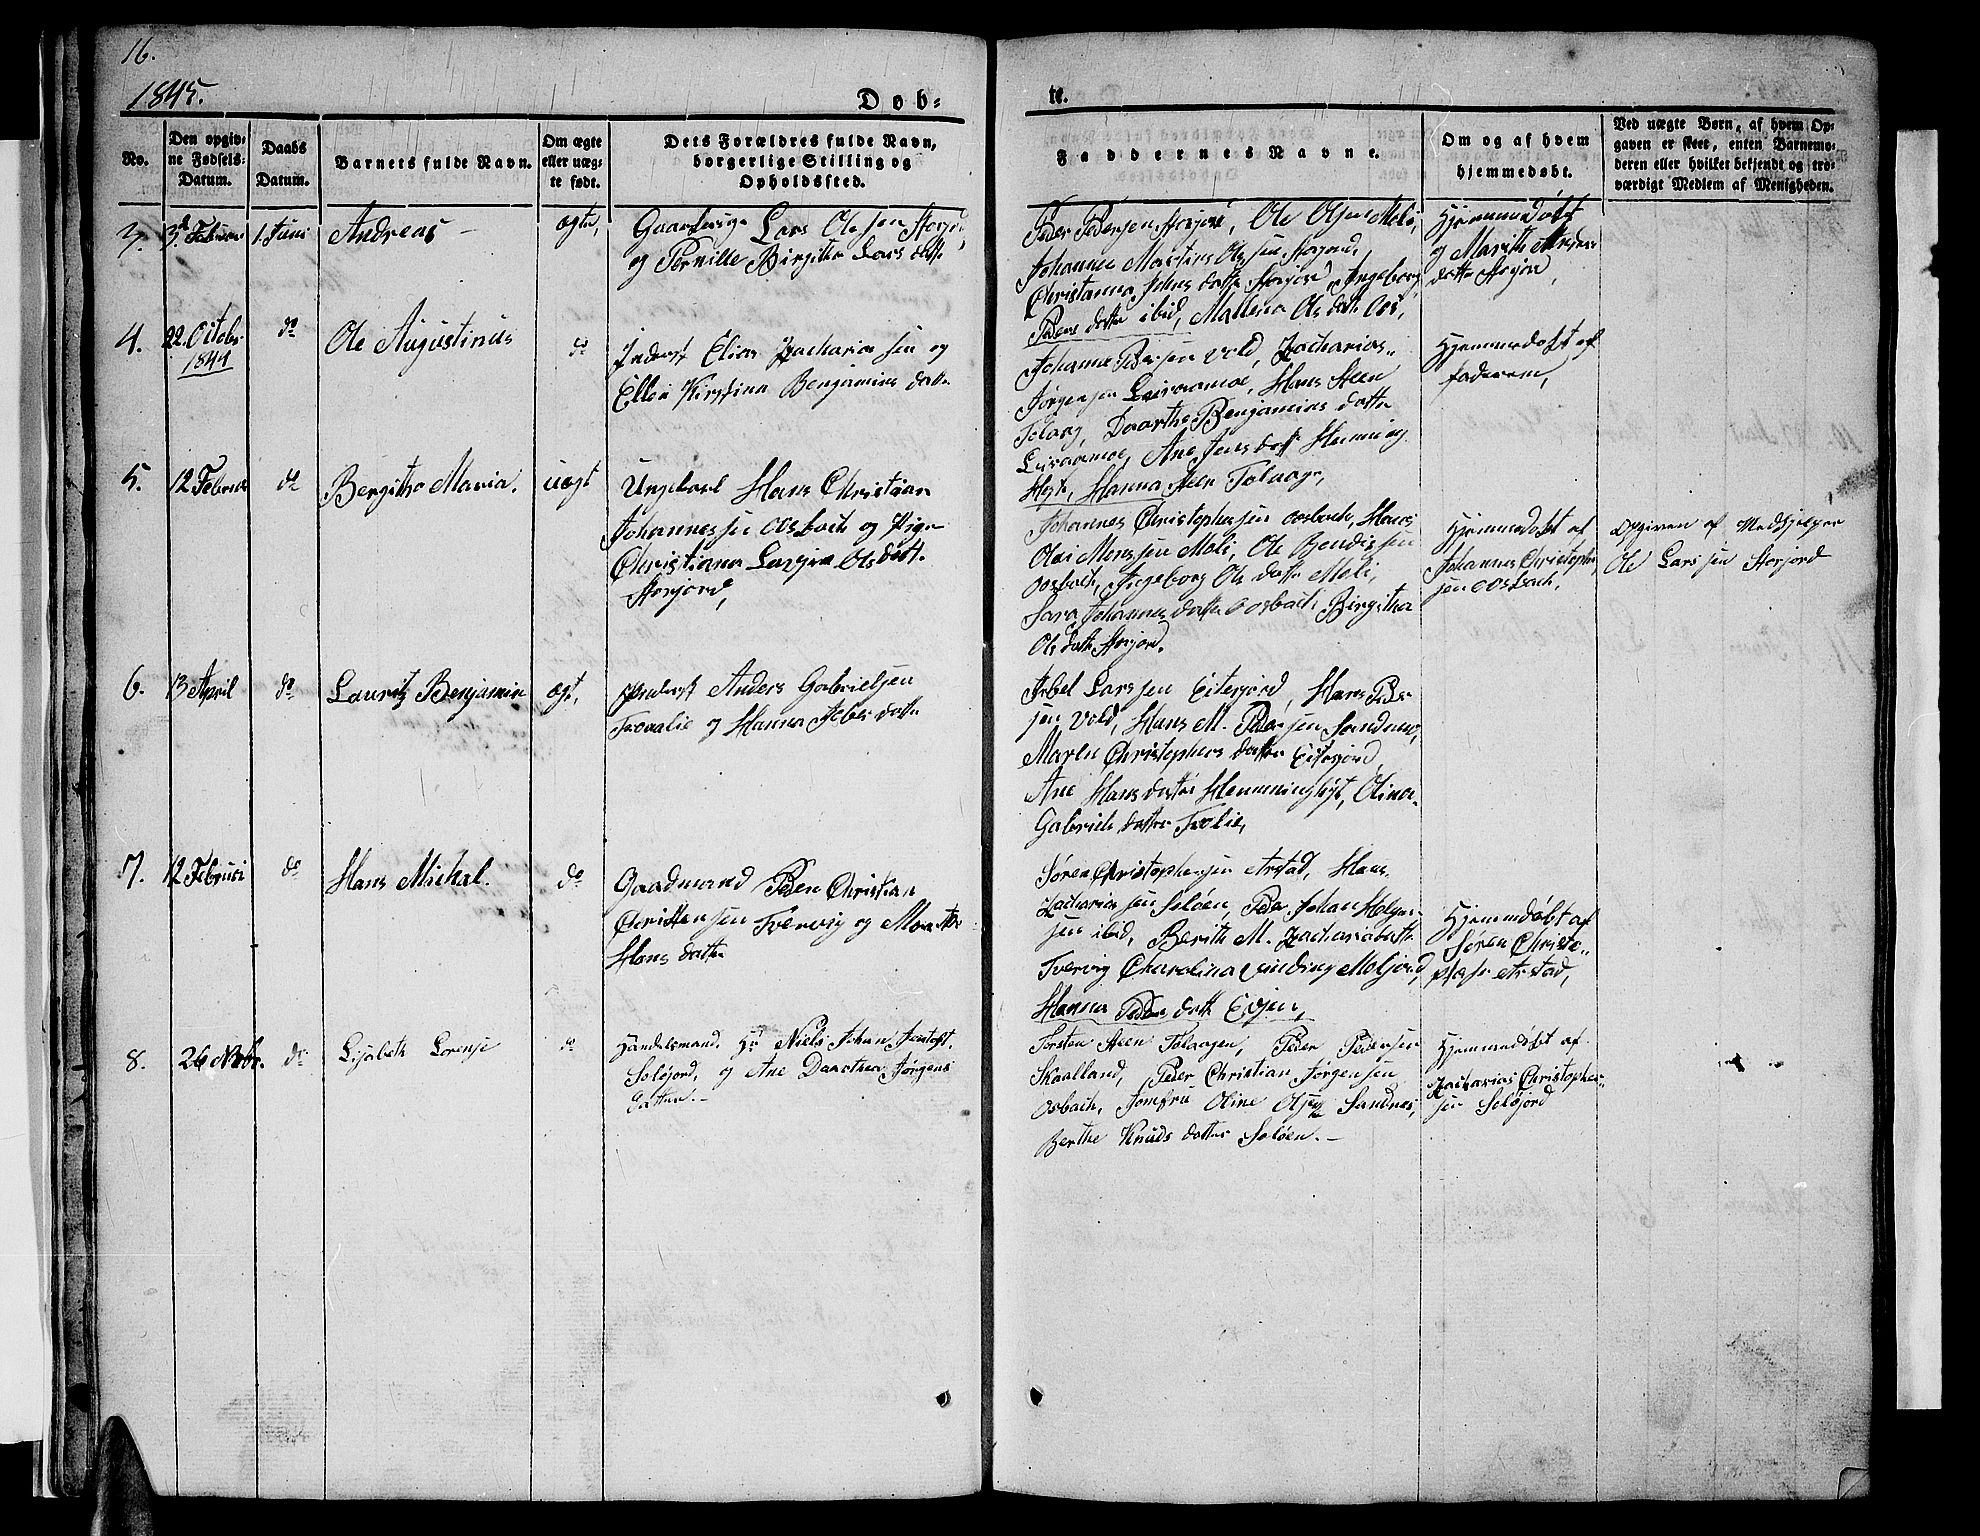 16.
1845.
Døb-
te.
No.
Den opgiv-
ne Fødsels-
Datum.
Daabs
Datum.
Barnets fulde Navn.
Om ægte
eller uæg-
te født.
Dets Forældres fulde Navn,
borgerlige Stilling og
Opholdssted.
Faddernes Navne.
Om og af hvem
hjemmedøbt.
Ved uægte Børn, af hvem Op-
gaven er skeet, enten Barnemo-
deren eller hvilket bekjendt og tro-
værdigt Medlem af Menigheden.
3. 1. Juni Andreas
Lars Olsen
og Pernille Birgitha Lars datter
Peder Pedersen Storjord, Ole Olsen Meli,
Johannes Martinus Olsen Storjord,
Christanna Johns datter Storjord, Ingeborg
Peders datter ibid, Mallena Ols datter
Hjemmedøbt
og Marith
datter Storjord,
4. 22. Octobr
1844
do Ole Augustinus do
Inderst Elias Zachariasen og
Ellen Kirstina Benjamins datter
Johannes Pedersen Vold, Zacharias
Jørgensen Leiraamoe, Hans Steen
Tolaag, Dorthe Benjamins datter
Leiraamoe, Ane Jens datter Hemming
Høgt, Hanna Steen Tolaag,
Hjemmedøbt af
faderen,
5. 12 Februar do Bergitha Maria. uægt
Ungkarl Hans Christian
Johannessen Oosbach og Pige
Christiana Olsdatt.
Storjord,
Johannes Christophersen Oosbach, Hans
Olai Monssen Meli, Ole Bendixsen
Oosbach, Ingeborg Ols datter Meli,
Sara Johannes datter Oosbach, Birgitha
Ols datter Storjord.
Hjemmedøbt af
Johannes Christopher
sen Oosbach.
Opgiven af Medhjelper
Ole Larssen Storjord
6. 13 April do Lauritz Benjamin ægt,
Inderst Anders Gabrielsen
og Hanna Jebes datter
Jebel Larssen Eiterjord, Hans Peder
sen Vold, Hans M. Pedersen Sandmo,
Maren Christophers datter Eiterjord
Ane Hans datter Hemminghøgt, Olina
Gabriels datter Trolie,
7. 12 Februari do Hans Michal. do
Gaadmand Peder Christian
Christensen Tvervig og
Hans datter
Søren Christophersen Arstad, Hans
Zachariasen Soløen, Peder Johan Holger
sen ibid, Berith M. Zachariadatter
Tvervig Charolina Vinding Moljord,
Hanna Peder datter Evjen,
Hjemmedøbt af
Søren Christo-
phsr Arstad,
8. 26 Nobr. do Lisabeth Lorense do
Handelsmand Hr Niels Johan Jentoft.
Soløjord, og Ane Dorothea Jørgens
datter.-
Torsten Steen Tolaagen, Peder Pedersen
Skaalland, Peder Christian Jørgensen
Osbach, Jomfru Oline Olsen Sandnes,
Berthe Knuds datter Soløen.-
Hjemmedøbt af
Zacharias Christopher-
sen Soløjord